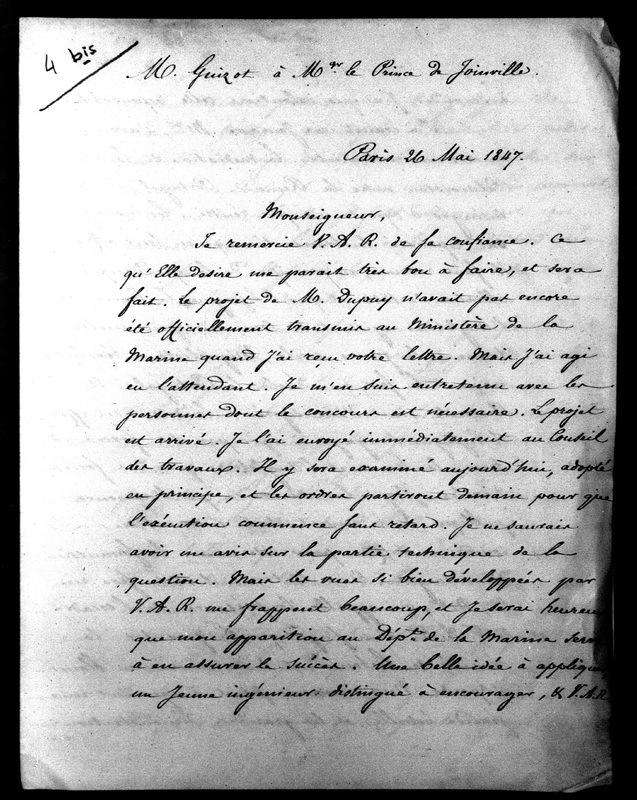 4 bis
M. Guizot à Mgr le Prince de Joinville.
Paris 26 Mai 1847.
Monseigneur,
Je remercie V. A. R. de sa confiance. Ce
qu'Elle desire me parait très bon à faire, et sera
fait. Le projet de M. Dupuy n'avait pas encore
été officiellement transmis au Ministère de la
Marine quand j'ai reçu votre lettre. Mais j'ai agi
en l'attendant. Je m'en suis entretenu avec les
personnes dont le concours est nécessaire. Le projet
est arrivé. Je l'ai envoyé immédiatement au Conseil
des travaux. Il y sera examiné aujourd'hui, adopté
en principe, et les ordres partiront demain pour que
l'exécution commence sans retard. Je ne saurais
avoir un avis sur la partie technique de la
question. Mais les vues si bien développées par
V. A. R. me frappent beaucoup, et je serai heureux
que mon apparition au Dépt. de la Marine serve
à en assurer le succès. Une belle idée à appliquer,
un jeune ingénieur distingué à encourager, & V. A. R.